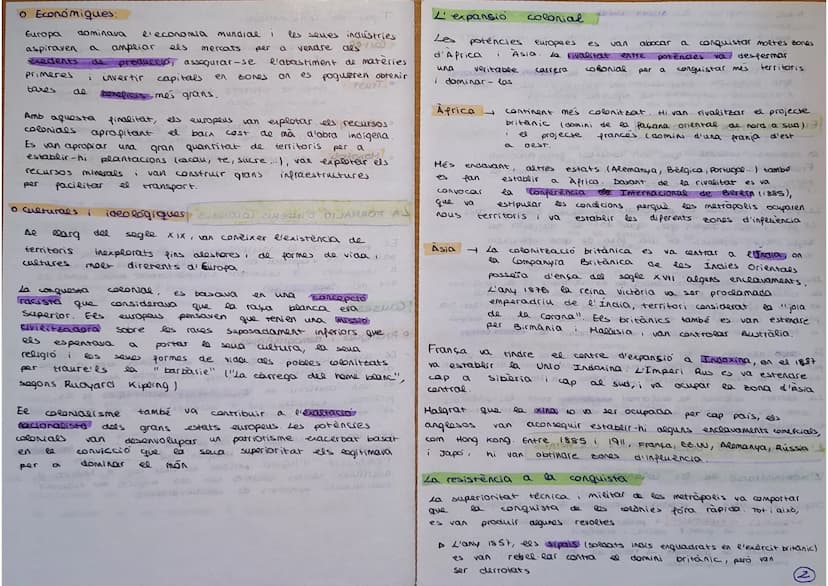 o Econòmiques:
Europa dominava l'economia mundial i les seues indústries
aspiraven a ampliar els mercats per a vendre els
excedents de producció, assegurar-se l'abastiment de matèries
primeres i invertir capitals en zones on es pogueren obtenir
taxes de beneficis més grans.
Amb aquesta finalitat, els europeus van explotar els recursos
colonials aprofitant el baix cost de mà d'obra indígena.
Es van apropiar una gran quantitat de territoris per a
establir-hi plantacions (cacau, te, sucre...), van explotar els
recursos minerals i van construir grans infraestructures
per facilitar el transport.
o Culturals i ideològiques
Al llarg del segle XIX, van conèixer l'existència de
territoris inexplorats fins aleshores i de formes de vida i
cultures molt diferents d'Europa.
La conquesta colonial es basava en una concepció
racista que considerava que la raça blanca era
superior. Els europeus pensaven que tenien una missió
civilitzadora sobre les races suposadament inferiors que
els espentava a portar la seua cultura, la seua
religió i les seues formes de vida als pobles colonitzats
per traure'ls la "barbàrie" ("La càrrega del home blanc",
segons Rudyard Kipling)
El colonialisme també va contribuir a l'exaltació
nacionalista dels grans estats europeus. Les potències
colonials van desenvolupar un patriotisme exacerbat basat
en la convicció que la seua superioritat els legitimava
per a dominar el món
L'expansió colonial
Les potències europees es van abocar a conquistar moltes zones
d'Àfrica i Àsia. La rivalitat entre potències va desfermar
una veritable carrera colonial per a conquistar més territoris
i dominar-los
Àfrica → continent més colonitzat. Hi van rivalitzar el projecte
britànic (domini de la façana oriental de nord a sud)
i el projecte francés (domini d'una franja d'est
a oest.
Més endavant, altres estats (Alemanya, Bèlgica, Portugal...) també
es fan establir a Àfrica. Davant de la rivalitat es va
convocar la Conferència Internacional de Berlín (1885),
que va estipular les condicions perquè les metròpolis ocuparen
nous territoris i va establir les diferents zones d'influència
Àsia → La colonització britànica es va centrar a l'Índia, on
la Companyia Britànica de les Índies Orientals
posseïa d'ença del segle XVII alguns enclavaments.
L'any 1876 la reina Victòria va ser proclamada
emperadriu de l'Índia, territori considerat la "joia
de la corona". Els britànics també es van estendre
per Birmània i Malàisia i van controlar Austràlia.
França va tindre el centre d'expansió a Indoxina, on el 1887
va establir la Unió Indoxina. L'Imperi Rus es va estendre
cap a Sibèria i cap al sud, i va ocupar la zona d'Àsia
central.
Malgrat que la Xina no va ser ocupada per cap país, els
anglesos van aconseguir establir-hi alguns enclavaments comercials,
com Hong Kong. Entre 1885 i 1911, França, EE.UU, Alemanya, Rússia
i Japó, hi van obtindre zones d'influència.
La resistència a la conquista
La superioritat tècnica i militar de les metròpolis va comportar
que la conquista de les colònies fóra ràpida. Tot i això,
es van produir algunes revoltes
▷ L'any 1857, els sipais (soldats indis enquadrats en l'exèrcit britànic)
es van rebel·lar contra el domini britànic, però van
ser derrotats
2